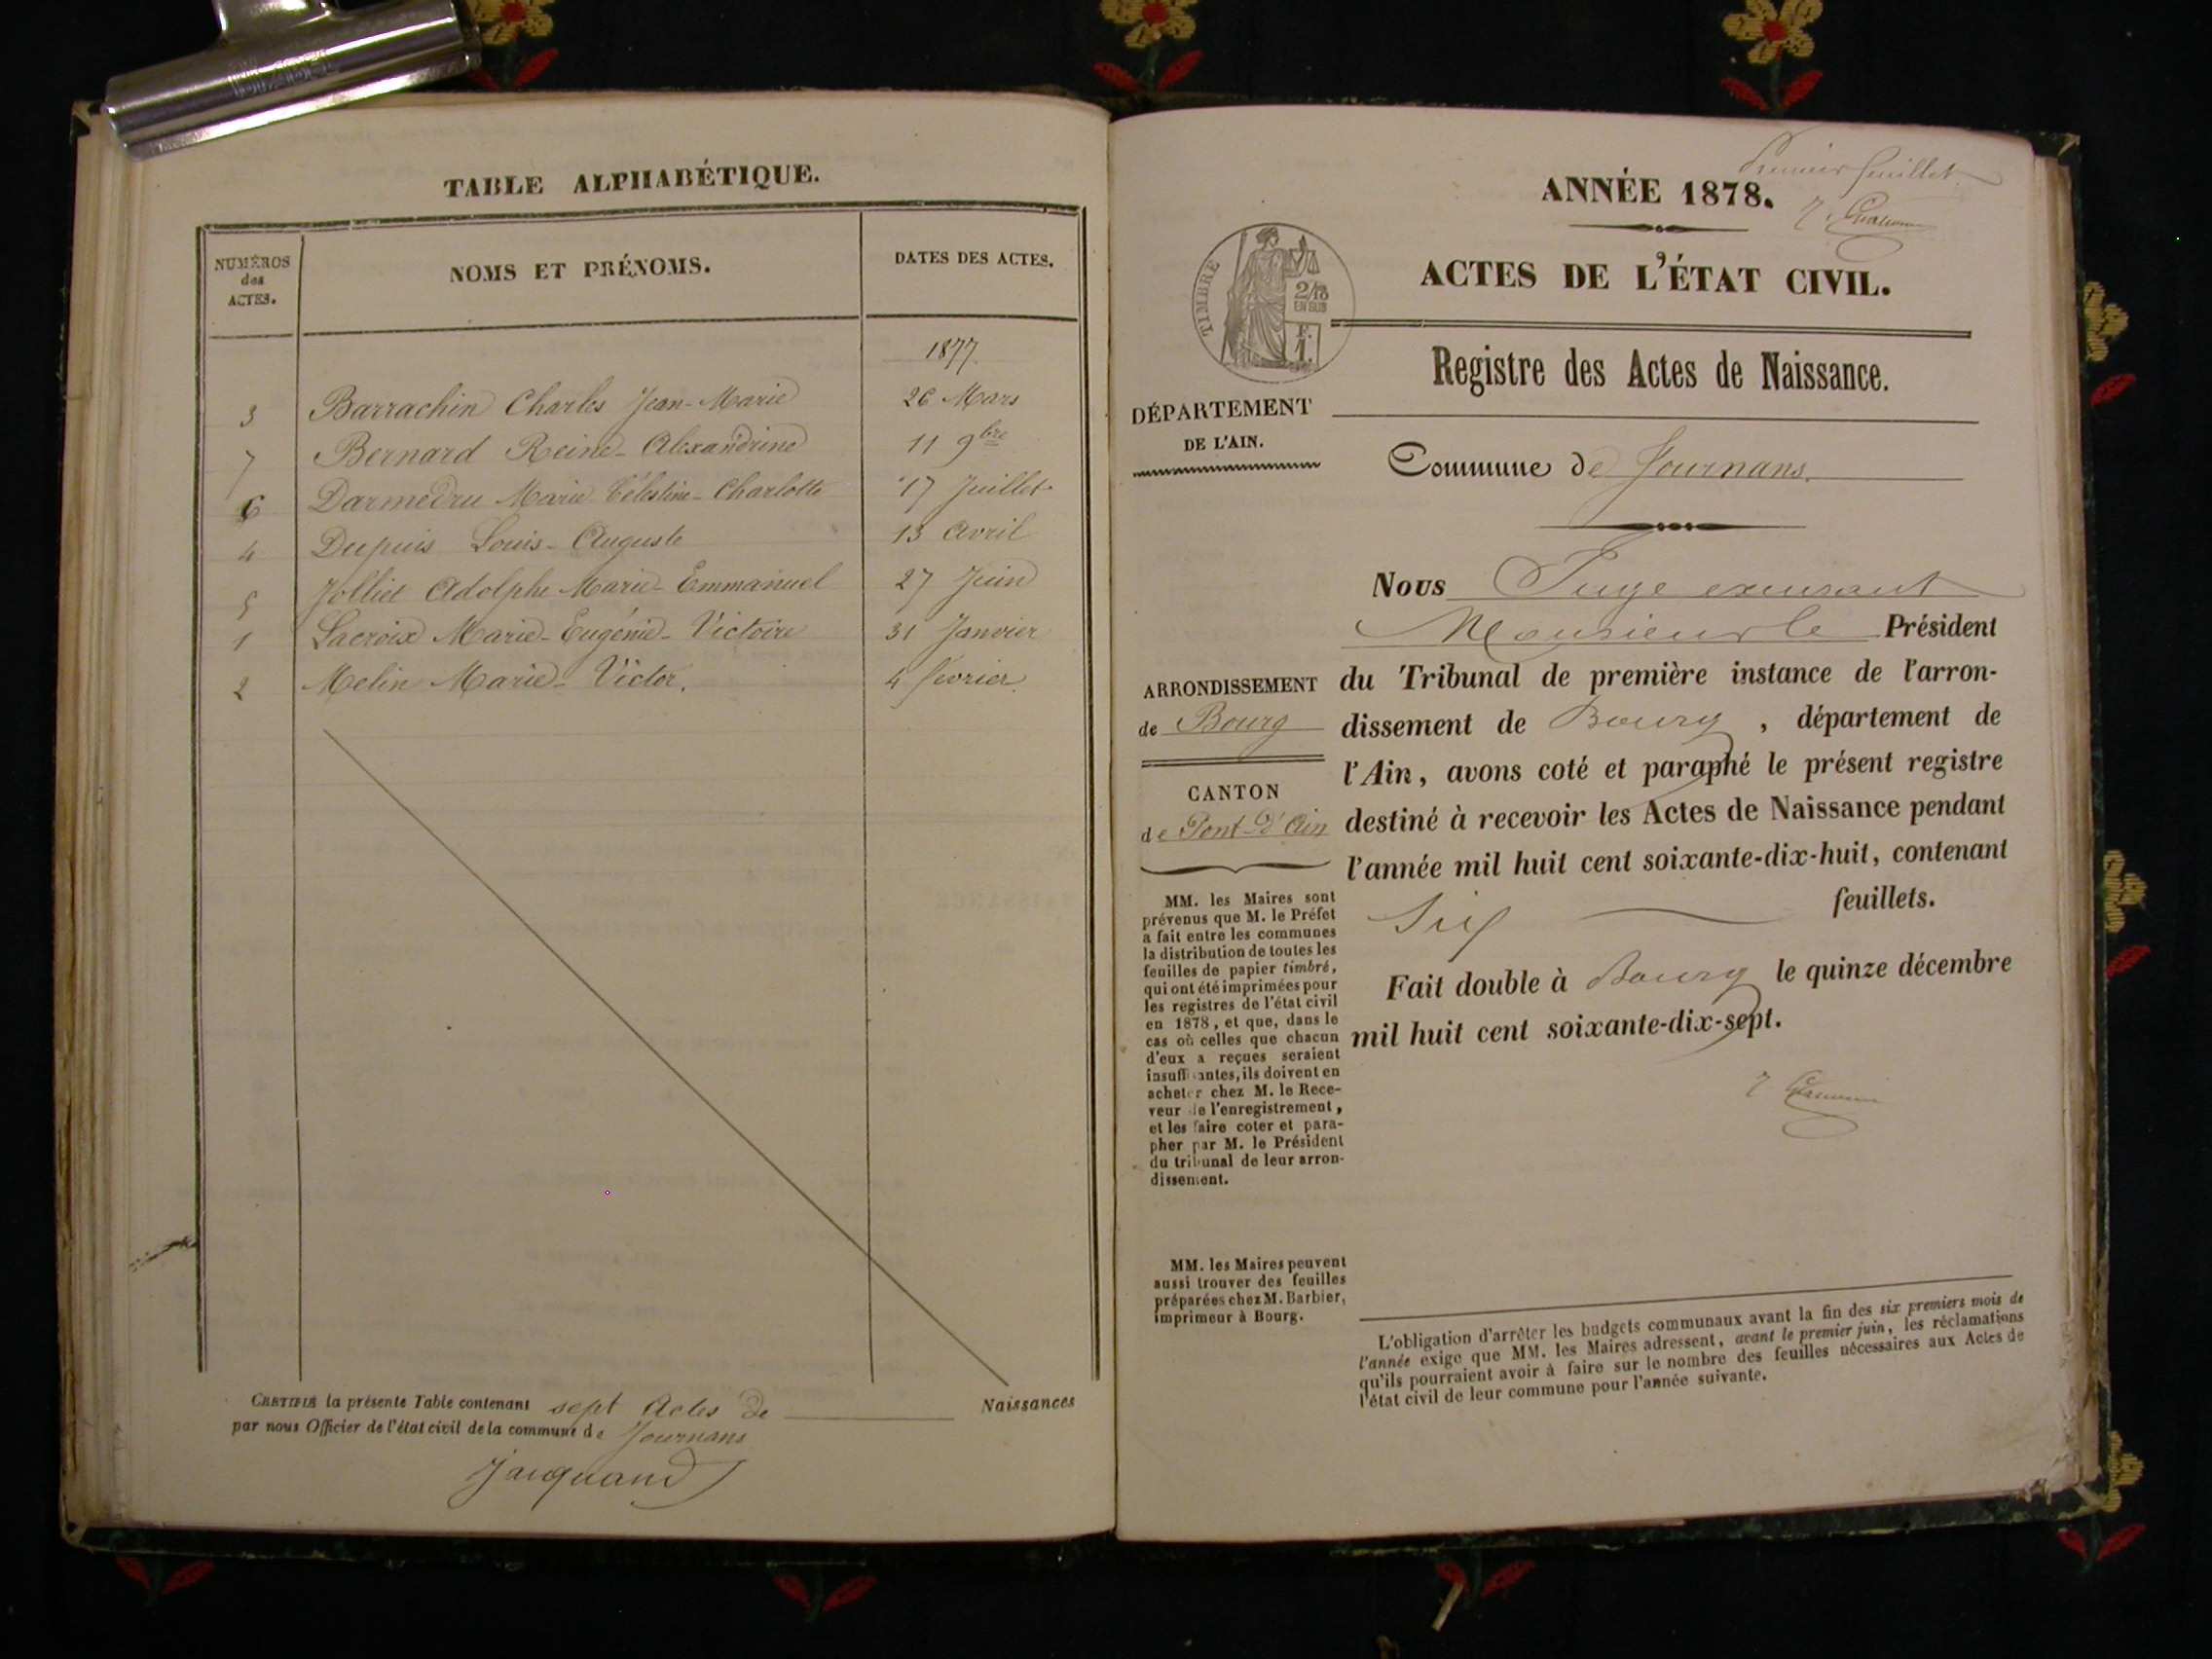 TABLE ALPHABÉTIQUE.
NUMÉROS
des
ACTES.
NOMS ET PRÉNOMS.
DATES DES ACTES.
1877.
3 Barrachin Charles Jean-Marie 26 Mars
7 Bernard Reine-Alexandrine 11 9bre
6 Darmedru Marie Célestine-Charlotte 17 Juillet
4 Dupuis Louis-Auguste 13 Avril
5 Jolliet Adolphe Marie-Emmanuel 27 Juin
1 Lacroix Marie-Eugénie-Victoire 31 Janvier
2 Melin Marie-Victor. 4 février.
CERTIFIÉ la présente Table contenant sept Actes de Naissances
par nous Officier de l'état civil de la commune de Journans
Jacquand
Premier feuillet
ANNÉE 1878.
ACTES DE L'ÉTAT CIVIL.
TIMBRE
2/10
EN SUS
F.
1.
Registre des Actes de Naissance.
DÉPARTEMENT
DE L'AIN.
Commune de Journans.
Nous Juge excusant
Monsieur le Président
du Tribunal de première instance de l'arron-
dissement de Bourg, département de
l'Ain, avons coté et paraphé le présent registre
destiné à recevoir les Actes de Naissance pendant
l'année mil huit cent soixante-dix-huit, contenant
Six feuillets.
Fait double à Bourg le quinze décembre
mil huit cent soixante-dix-sept.
ARRONDISSEMENT
de Bourg
CANTON
de Pont-d'Ain
MM. les Maires sont
prévenus que M. le Préfet
a fait entre les communes
la distribution de toutes les
feuilles de papier timbré,
qui ont été imprimées pour
les registres de l'état civil
en 1878, et que, dans le
cas où celles que chacun
d'eux a reçues seraient
insuffisantes, ils doivent en
acheter chez M. le Rece-
veur de l'enregistrement,
et les faire coter et para-
pher par M. le Président
du tribunal de leur arron-
dissement.
MM. les Maires peuvent
aussi trouver des feuilles
préparées chez M. Barbier,
imprimeur à Bourg.
L'obligation d'arrêter les budgets communaux avant la fin des six premiers mois de
l'année exige que MM. les Maires adressent, avant le premier juin, les réclamations
qu'ils pourraient avoir à faire sur le nombre des feuilles nécessaires aux Actes de
l'état civil de leur commune pour l'année suivante.